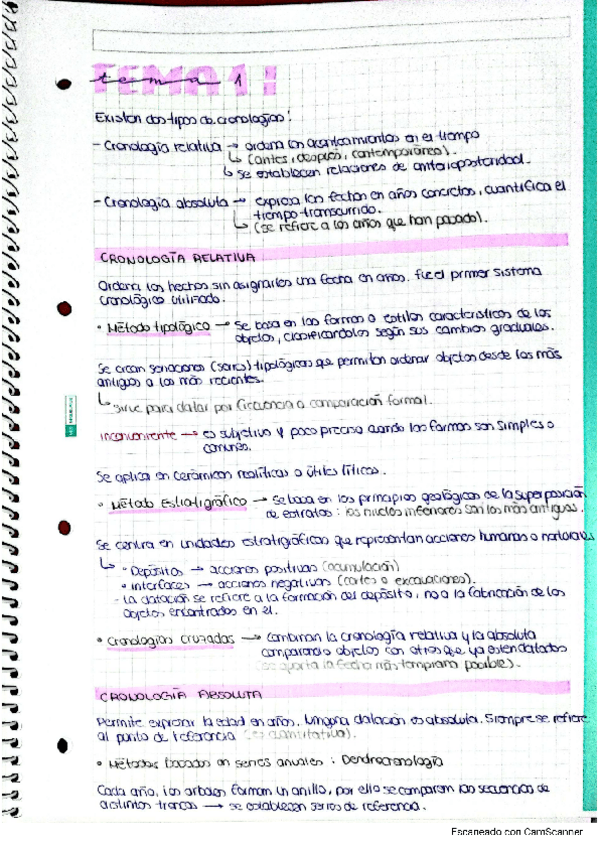 tema 1
TEMA 1:
Existen dos tipos de cronologías:
- Cronología relativa → ordena los acontecimientos en el tiempo
↳ (antes, después, contemporáneo).
↳ se establecen relaciones de anterioposteridad.
- Cronología absoluta → expresa las fechas en años concretos, cuantifica el
tiempo transcurrido.
↳ (se refiere a los años que han pasado).
CRONOLOGÍA RELATIVA
Ordena los hechos sin asignarles una fecha en años. Fue el primer sistema
cronológico utilizado.
• Método tipológico → Se basa en las formas o estilos característicos de los
objetos, clasificándolos según sus cambios graduales.
Se crean seriaciones (series) tipológicas que permiten ordenar objetos desde los más
antiguos a los más recientes.
↳ Sirve para datar por frecuencia o comparación formal.
Inconveniente → es subjetivo y poco preciso cuando las formas son simples o
comunes.
Se aplica en cerámicas neolíticas o útiles líticos.
• Método Estratigráfico → Se basa en los principios geológicos de la superposición
de estratos: los niveles inferiores son los más antiguos.
Se centra en unidades estratigráficas que representan acciones humanas o naturales
↳ • Depósitos → acciones positivas (acumulación)
• interfaces → acciones negativas (cortes o excavaciones).
- La datación se refiere a la formación del depósito, no a la fabricación de los
objetos encontrados en el.
• Cronologías cruzadas → Combinan la cronología relativa y la absoluta
comparando objetos con otros que ya están datados
(se aporta la fecha más temprana posible).
CRONOLOGÍA ABSOLUTA
Permite expresar la edad en años. Ninguna datación es absoluta. Siempre se refiere
al punto de referencia (es cuantitativa).
• Métodos basados en series anuales: Dendrocronología
Cada año, los arboles forman un anillo, por ello se comparan las secuencias de
distintos troncos → se establecen series de referencia.
Escaneado con CamScanner